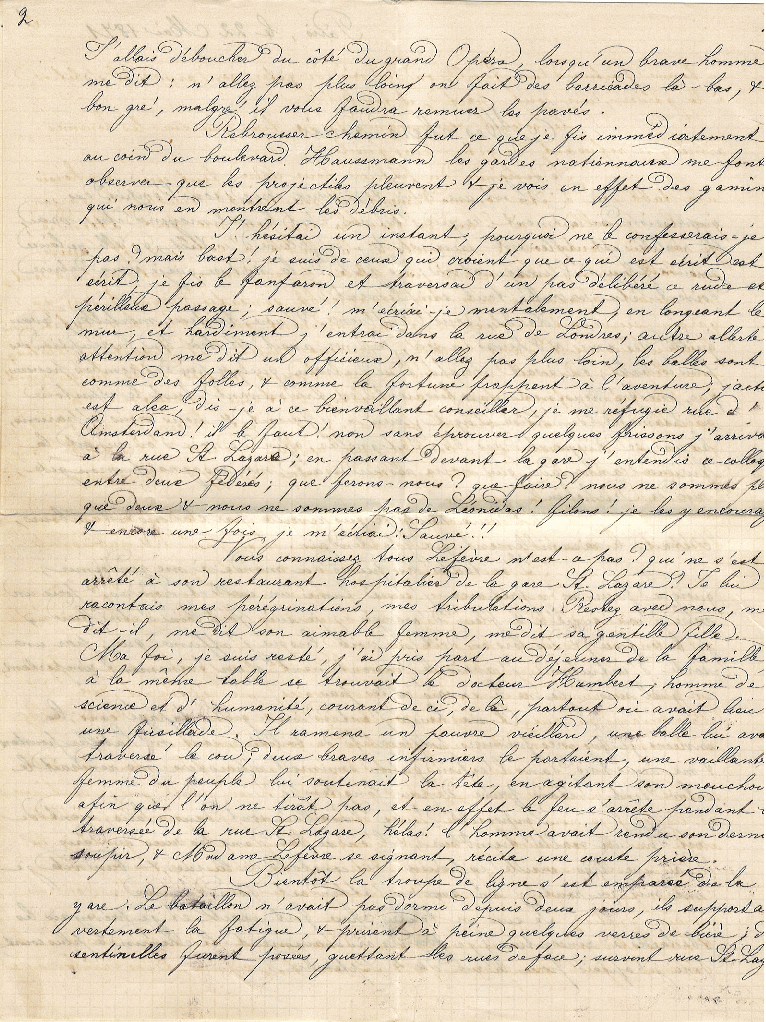 2
J'allais déboucher du côté du grand Opéra, lorsqu'un brave homme
me dit : n'allez pas plus loin, on fait des barricades là-bas, &
bon gré, malgré, il vous faudra remuer les pavés.
Rebrousser chemin fut ce que je fis immédiatement
au coin du boulevard Haussmann les gardes nationnaux me font
observer que les projectiles pleuvent & je vois en effet des gamin
qui nous en montrent les débris.
J'hésitai un instant, pourquoi ne le confesserais-je
pas? mais bast! je suis de ceux qui croient que ce qui est écrit est
écrit, je fis le fanfaron et traversai d'un pas délibéré ce rude et
périlleux passage; sauvé! m'écriai-je mentalement, en longeant le
mur, et hardiment j'entrai dans la rue de Londres; autre alerte
attention me dit un officieux, n'allez pas plus loin, les balles sont
comme des folles, & comme la fortune frappent à l'aventure; jacta
est alea, dis-je à ce bienveillant conseiller, je me réfugie rue d'
Amsterdam! il le faut! non sans éprouver quelques frissons j'arrivai
à la rue St Lazare; en passant devant la gare j'entendis ce colloq
entre deux fédérés; que ferons-nous? que faire? nous ne sommes pl
que deux & nous ne sommes pas de Léonidas! filons! je les y encourag
& encore une fois je m'écriai: Sauvé!!
Vous connaissez tous Lefèvre n'est-ce pas? qui ne s'est
arrêté à son restaurant hospitalier de la gare St Lazare? Je lui
racontais mes pérégrinations, mes tribulations. Restez avec nous, me
dit-il, me dit son aimable femme, me dit sa gentille fille.
Ma foi, je suis resté, j'ai pris part au déjeuner de la famille
à la même table se trouvait le docteur Humbert, homme de
science et d'humanité, courant de ci, de là, partout où avait lieu
une fusillade. Il ramena un pauvre vieillard, une balle lui ava
traversé le cou; deux braves infirmiers le portaient, une vaillante
femme du peuple lui soutenait la tête, en agitant son mouchoi
afin que l'on ne tirât pas, et en effet le feu s'arrête pendant
traversée de la rue St Lazare, hélas! l'homme avait rendu son derni
soupir, & Madame Lefèvre se signant, récita une courte prière.
Bientôt la troupe de ligne s'est emparée de la
gare. Le bataillon n'avait pas dormi depuis deux jours, ils supporta
vertement la fatigue, & prirent à peine quelques verres de bière; d
sentinelles furent posées, guettant les rues de face; suivent rue St Laz